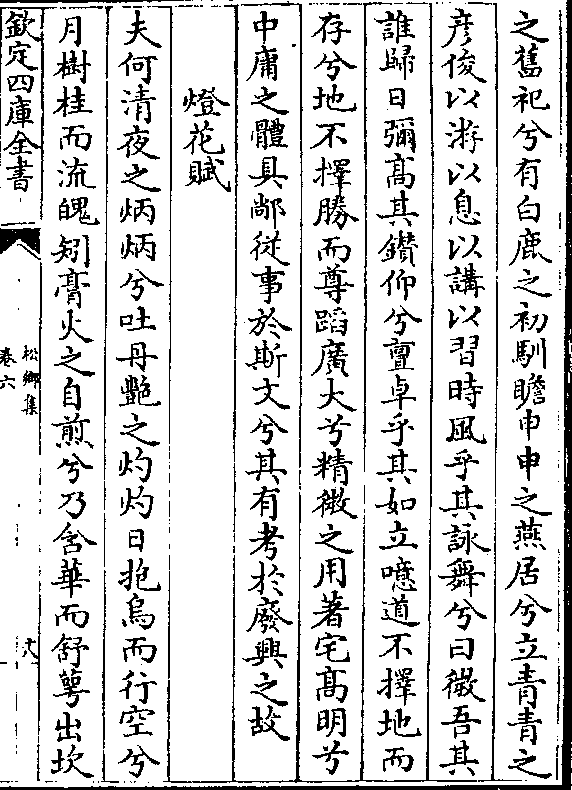 之舊祀兮有白鹿之初馴瞻申申之燕居兮立青青之
彦俊以游以息以講以習時風乎其詠舞兮曰微吾其
誰歸日彌髙其鑚仰兮亶卓乎其如立噫道不擇地而
存兮地不擇勝而尊蹈廣大兮精微之用著宅髙明兮
中庸之體具鄗從事於斯文兮其有考於廢興之故
燈花賦
夫何清夜之炳炳兮吐丹艶之灼灼日抱烏而行空兮
月樹桂而流魄矧膏火之自煎兮乃含華而舒萼出坎
欽定四庫全書
松鄉集
卷六